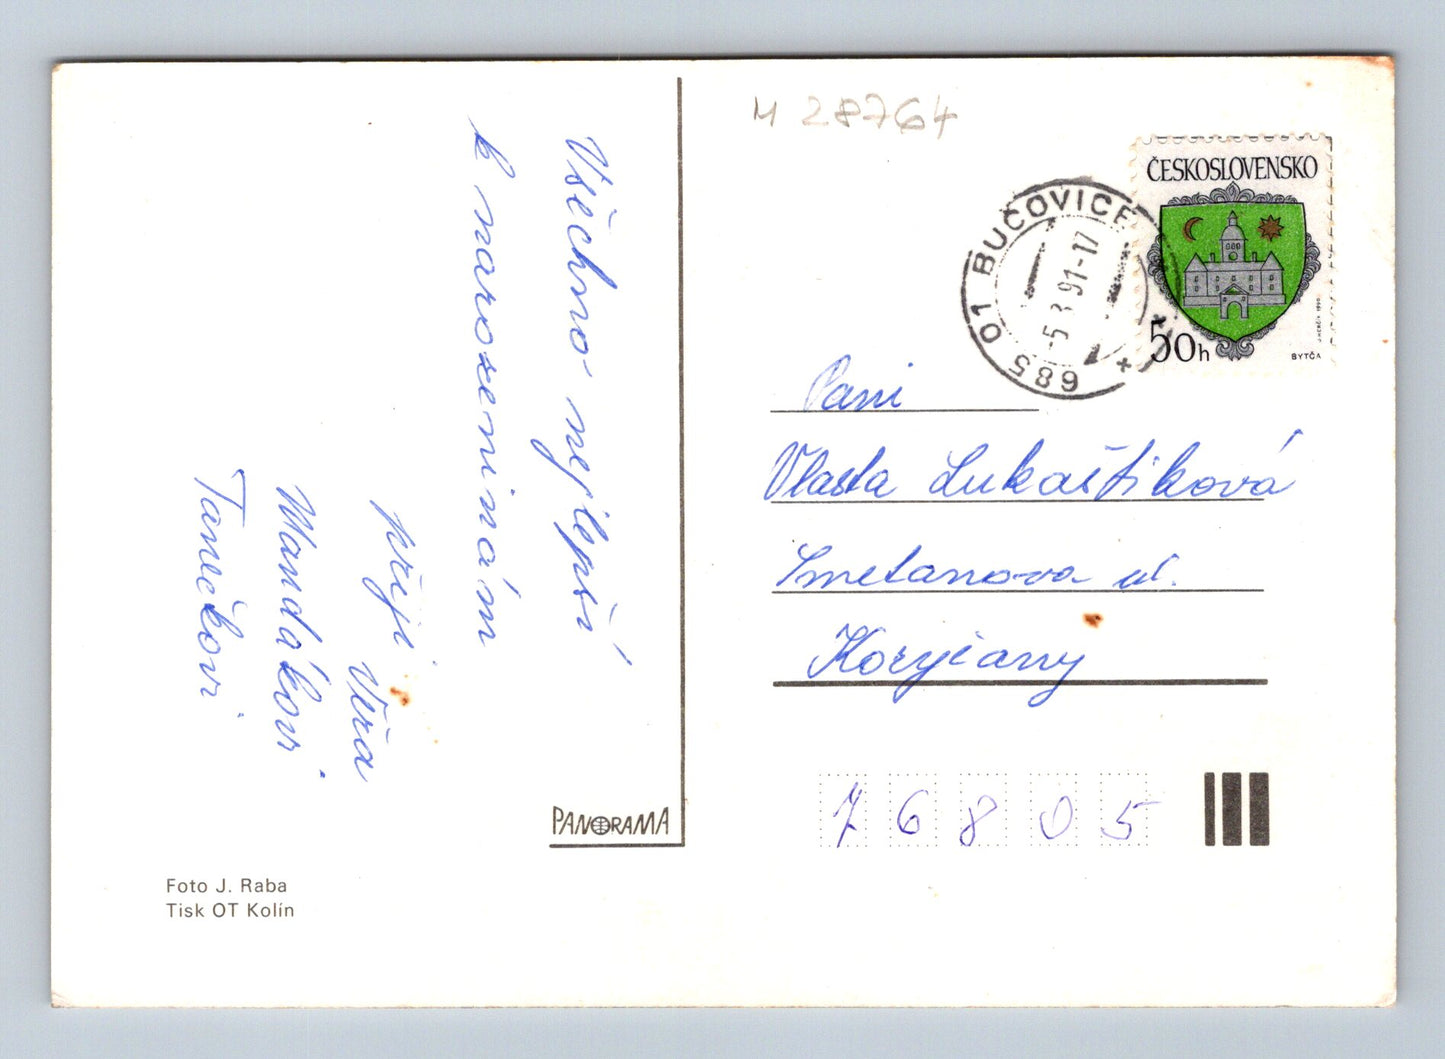 Všechno nejlepší
k narozeninám
přejí Věra
Mandákovi
Tanečkovi
PANORAMA
Foto J. Raba
Tisk OT Kolín
M 28764
ČESKOSLOVENSKO
50h
BYTČA
685 01 BUČOVICE
-5.3.91-17
Paní
Vlasta Lukaštíková
Smetanova ul.
Koryčany
76805